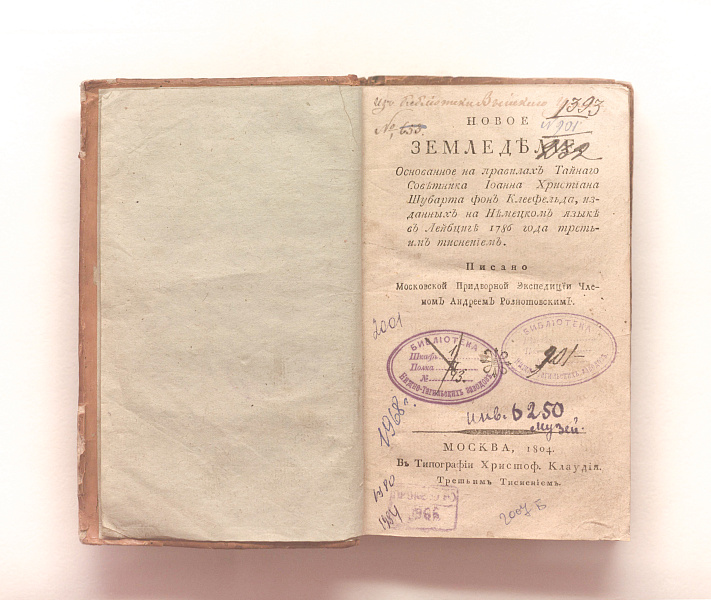 изъ библіотеки Выйскаго
1393
№, 133.
НОВОЕ
№ 901
ЗЕМЛЕДѢЛІЕ,
Основанное на правилахъ Тайнаго
Совѣтника Іоанна Христіана
Шубарта фонъ Клеефельда, из-
данныхъ на Нѣмецкомъ языкѣ
въ Лейбцигѣ 1786 года треть-
имъ тисненіемъ.
Писано
Московской Придворной Экспедиціи Чле-
номъ Андреемъ Ролнотовскимъ.
2001
БИБЛІОТЕКА
Шкафъ 1
Полка
№ 193.
Нижне-Тагильскихъ заводовъ
БИБЛІОТЕКА
901-
1968г.
инв. 6250
музей.
МОСКВА, 1804.
Въ Типографіи Христоф. Клаудія.
Третьимъ Тисненіемъ.
1980
1984
1966
2007 Б